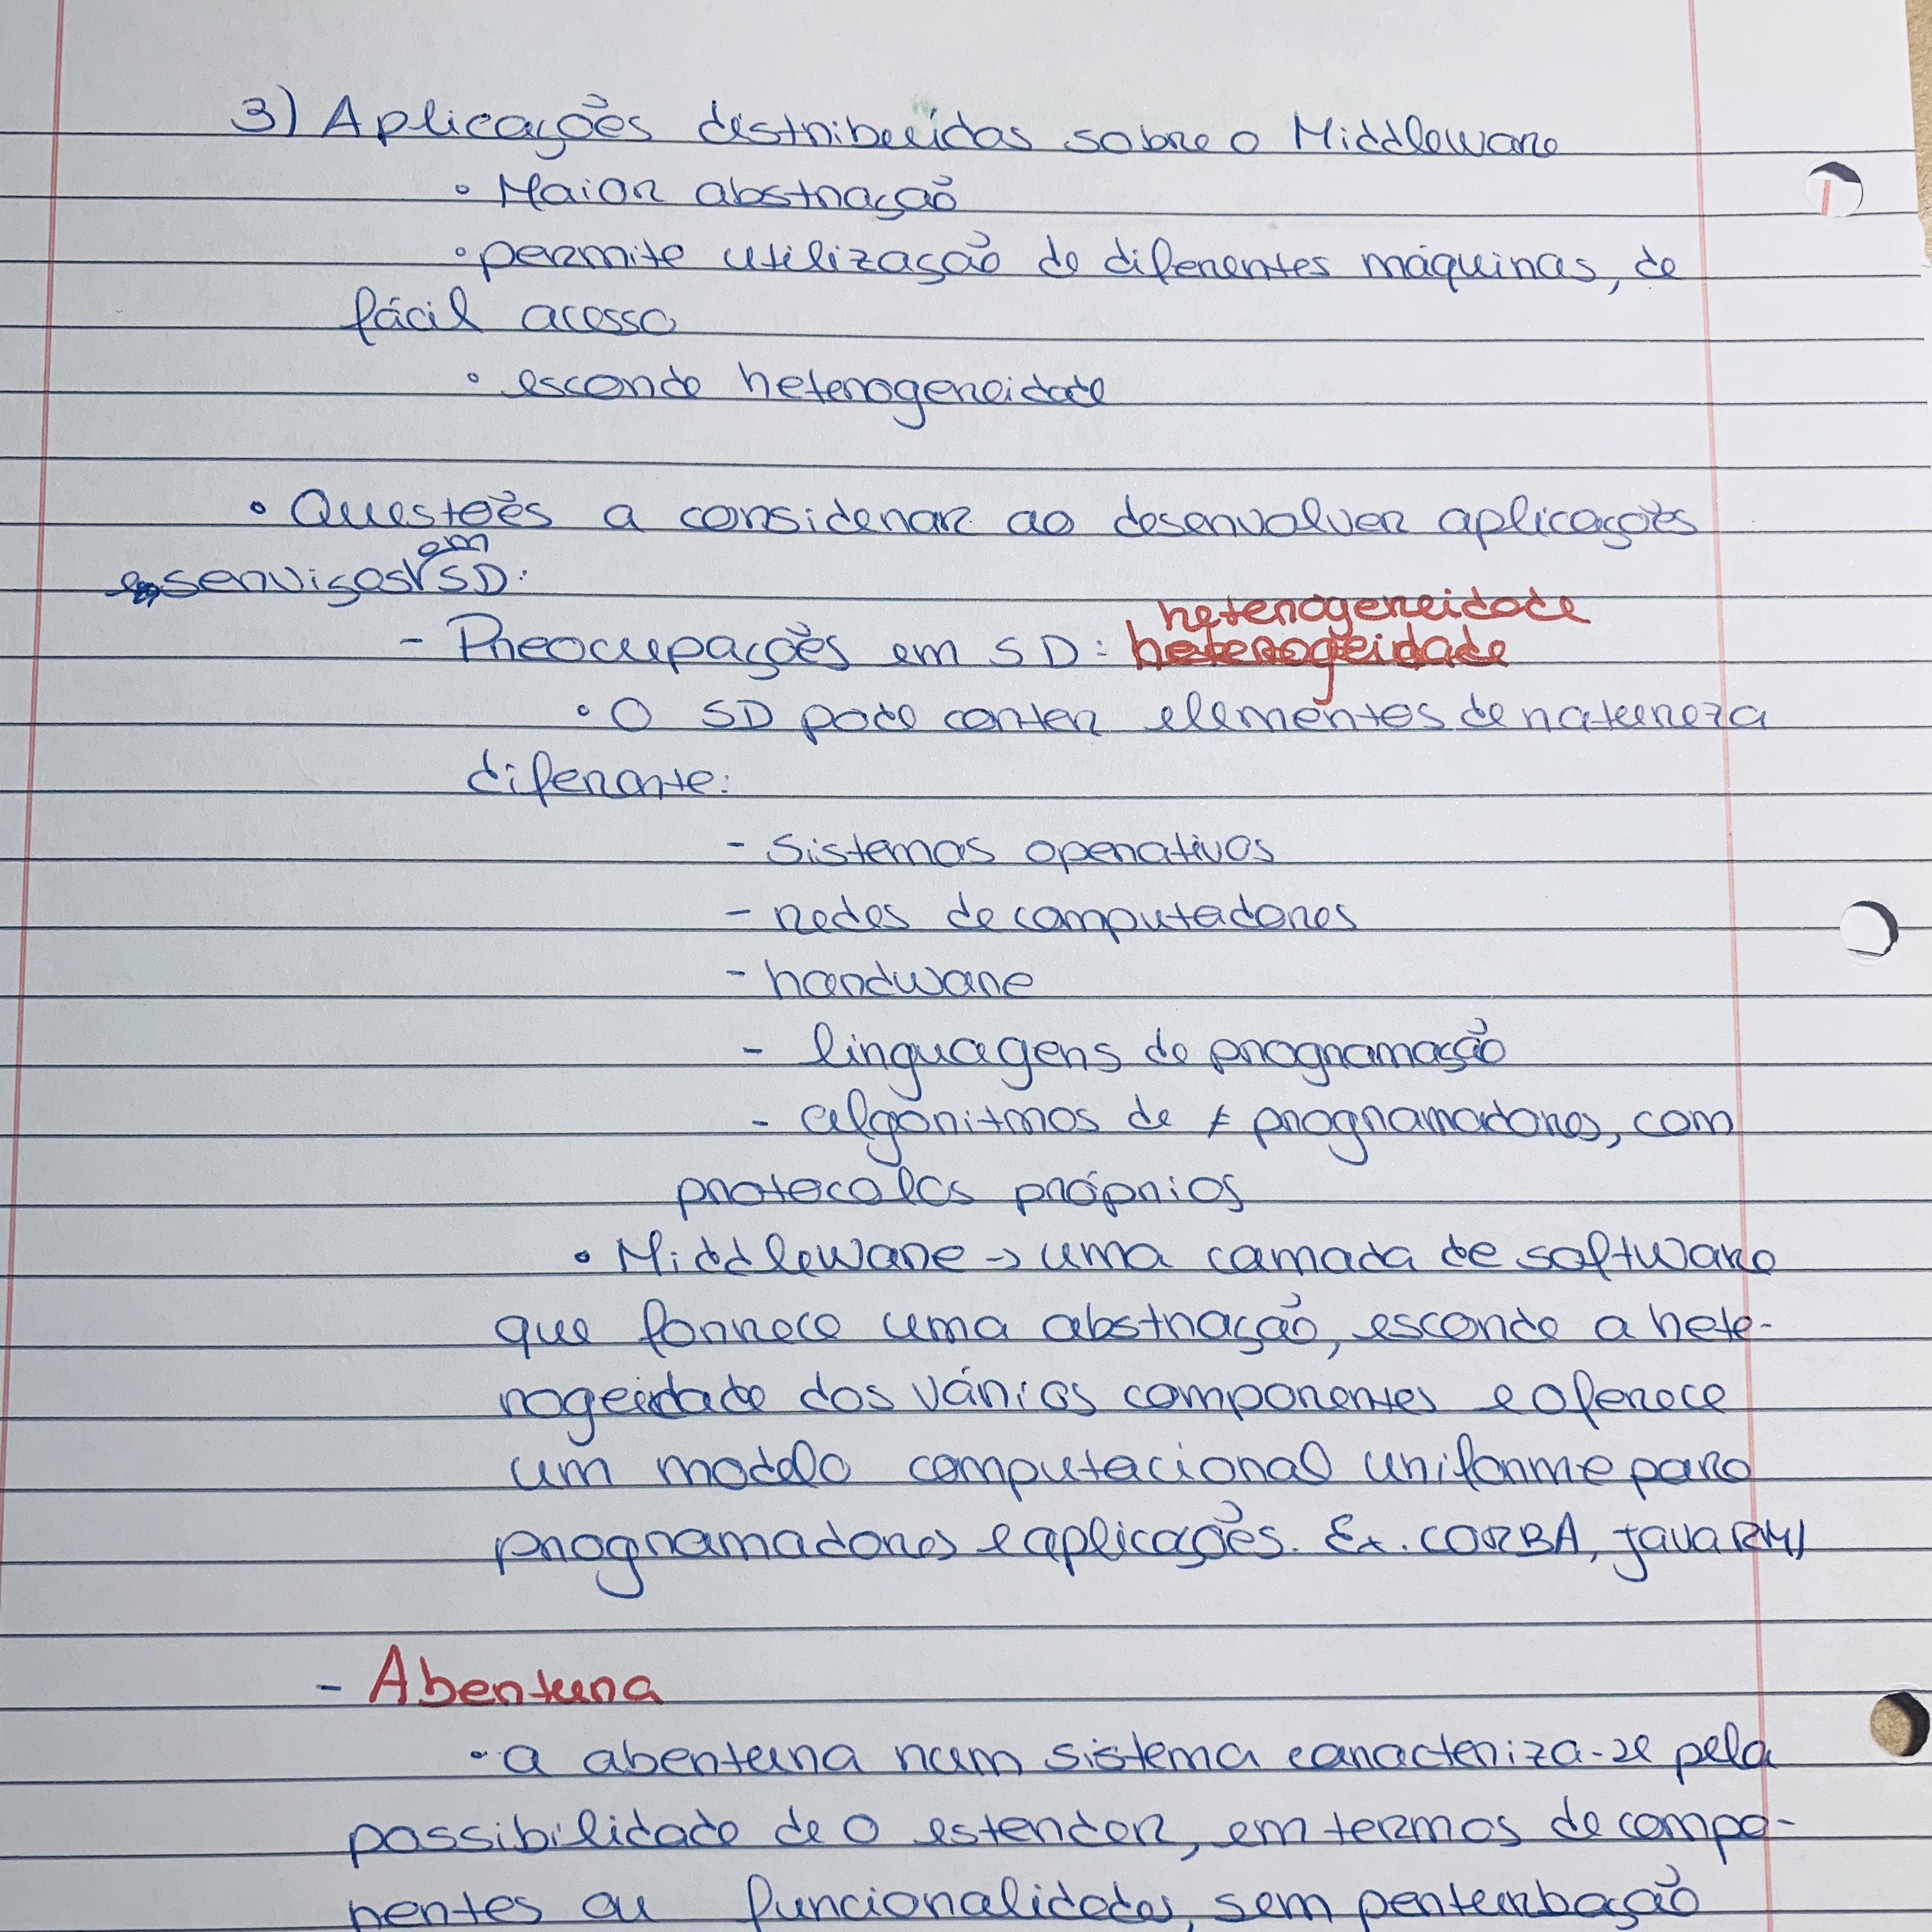 3) Aplicações distribuídas sobre o Middleware
• Maior abstração
• permite utilização de diferentes máquinas, de
fácil acesso
• esconde heterogeneidade
• Questões a considerar ao desenvolver aplicações
em
serviços SD:
- Preocupações em SD: heterogeneidade
heterogeidade
• O SD pode conter elementos de natureza
diferente:
- sistemas operativos
- redes de computadores
- hardware
- linguagens de programação
- algoritmos de ≠ programadores, com
protocolos próprios
• Middleware → uma camada de software
que fornece uma abstração, esconde a hete-
rogeidade dos vários componentes e oferece
um modelo computacional uniforme para
programadores e aplicações. Ex. CORBA, java RMI
- Abertura
• a abertura num sistema caracteriza-se pela
possibilidade de o estender, em termos de compo-
nentes ou funcionalidades, sem perturbação